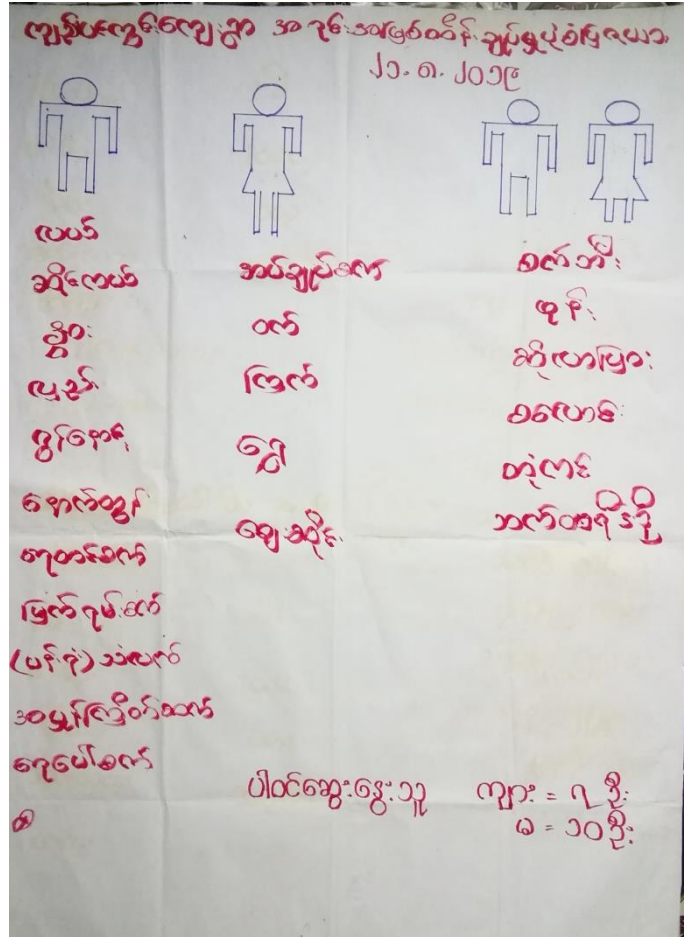 ကျည်ပကွေ့ကျေးရွာ အရင်းအမြစ်ထိန်းချုပ်မှုပုံစံပြဇယား
၂၁.၈.၂၀၁၉
လယ်
ဆိုင်ကယ်
နွား
လှည်း
ဂွန်နောင့်
နောက်တွန်
ရေတင်စက်
မြက်ရမ်းစက်
(ပန်းရံ)သံလက်
အမှုန့်ကြိတ်စက်
ရေပေါ်စက်
အပ်ချုပ်စက်
ဝက်
ကြက်
ရွှေ
ဈေးဆိုင်
စက်ဘီး
ဖုန်း
ဆိုလာပြား
စလောင်း
တုံကင်
ဘက်ထရီအိုး
ပါဝင်ဆွေးနွေးသူ
ကျား = ၇ ဦး
မ = ၁၀ ဦး